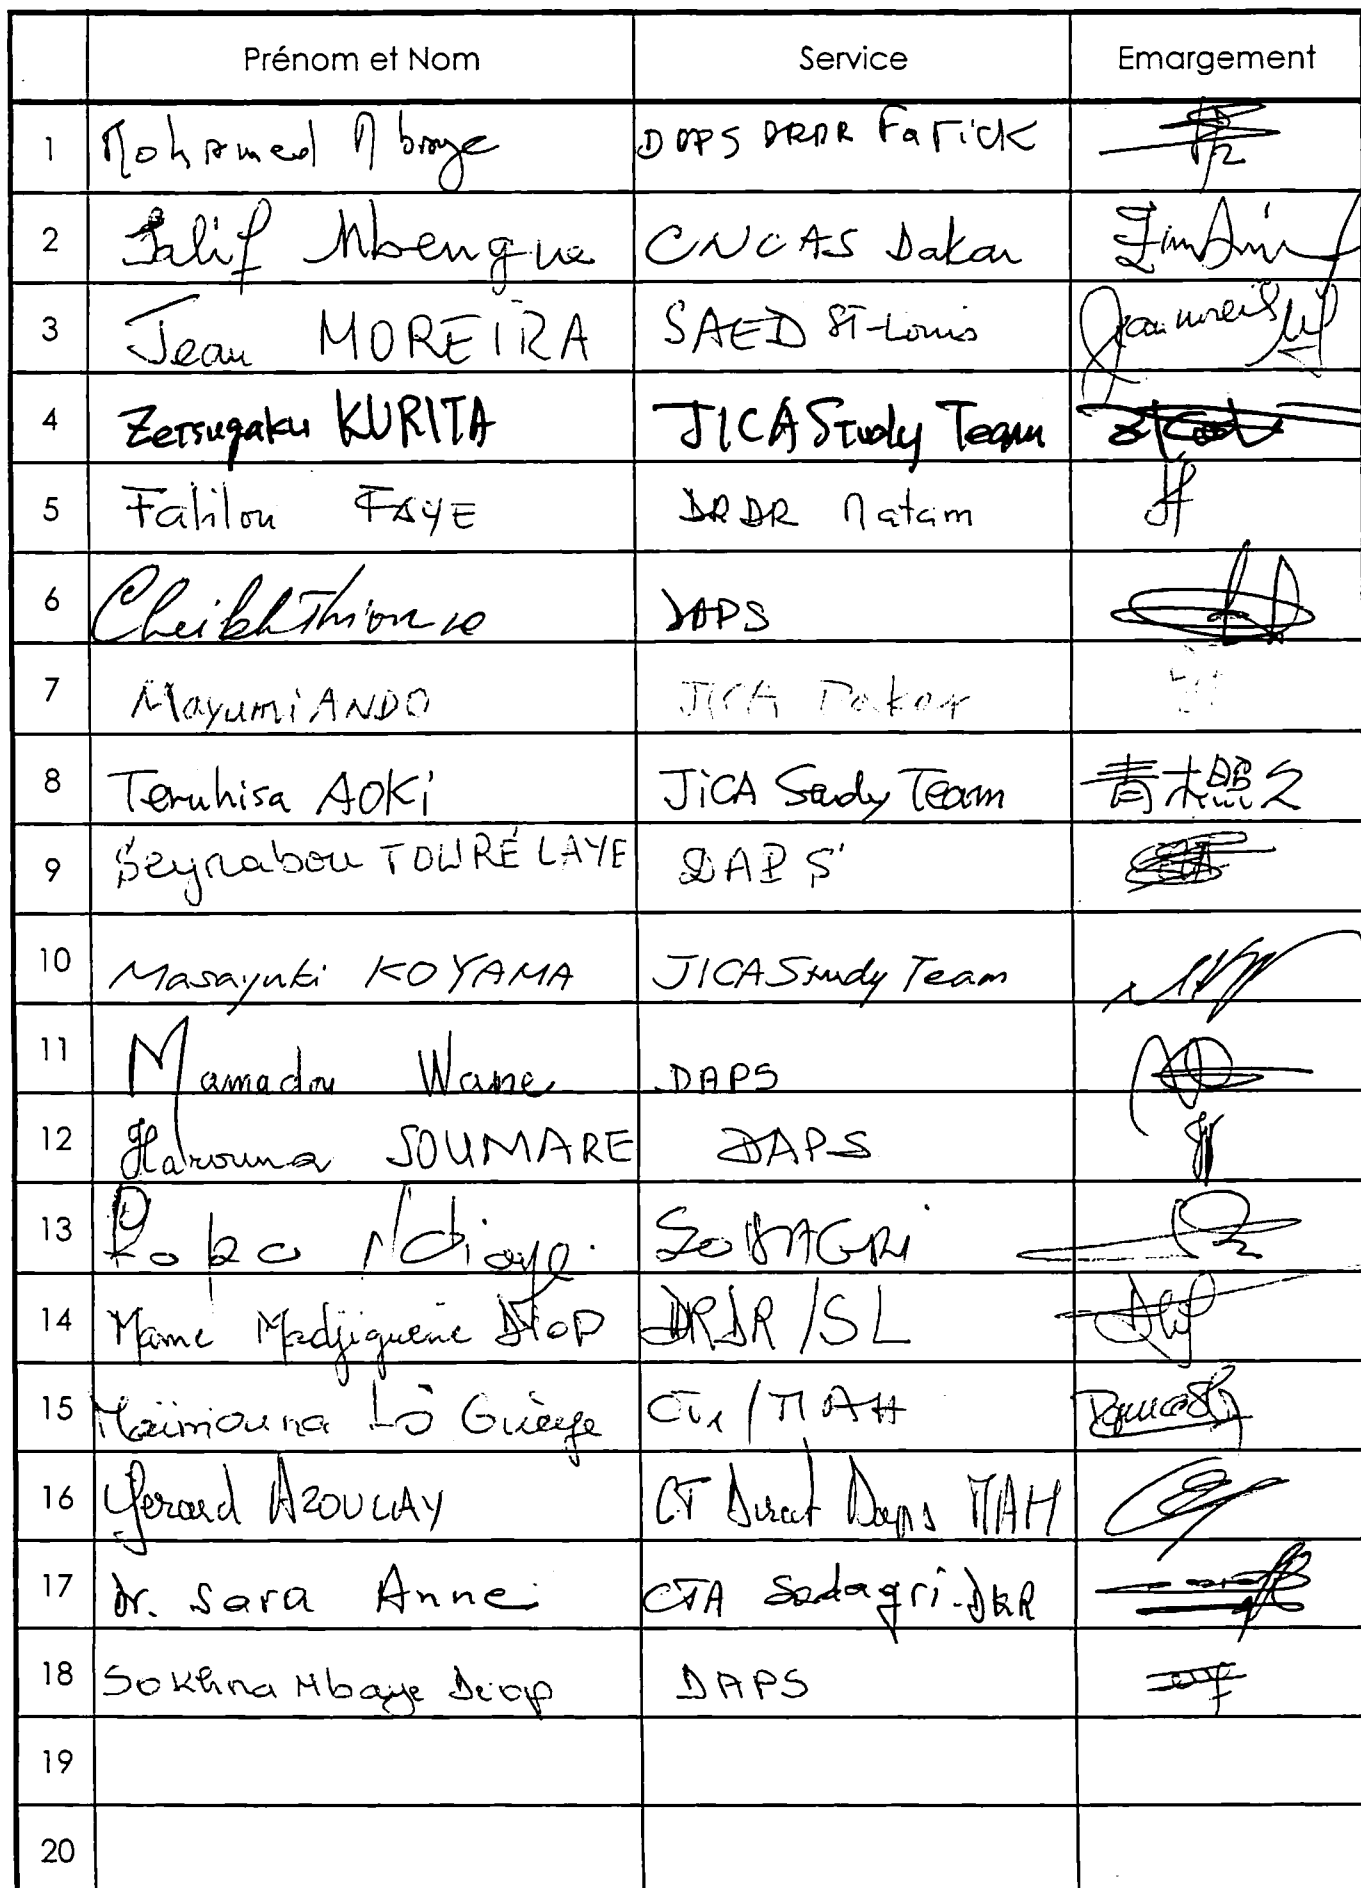 Prénom et Nom Service Emargement
1 Mohamed Mbaye DAPS DRDR Fatick
2 Salif Mbengue CNCAS Dakar
3 Jean MOREIRA SAED ST-Louis
4 Zetsugaku KURITA JICA Study Team
5 Falilou FAYE DRDR Matam
6 Cheikh Thioune DAPS
7 Mayumi ANDO JICA Dakar
8 Teruhisa AOKI JICA Study Team 青木照久
9 Seynabou TOURÉ LAYE DAPS
10 Masayuki KOYAMA JICA Study Team
11 Mamadou Wane DAPS
12 Harouna SOUMARE DAPS
13 Ndiaye
14 Mame Madjiguène DIOP DRDR/SL
15 Maïmouna Lô Guèye /MAH
16 Gerard AZOULAY CT Daps MAH
17 Dr. Sara Anne CTA Sodagri-DKR
18 Sokhna Mbaye Diop DAPS
19
20